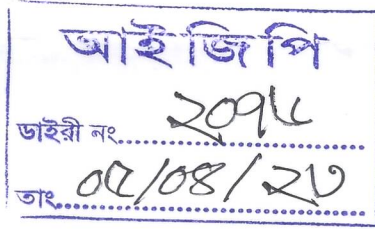 আইজিপি
ডাইরী নং........ ২০৭৮
তাং........ ০৫/০৪/২৩